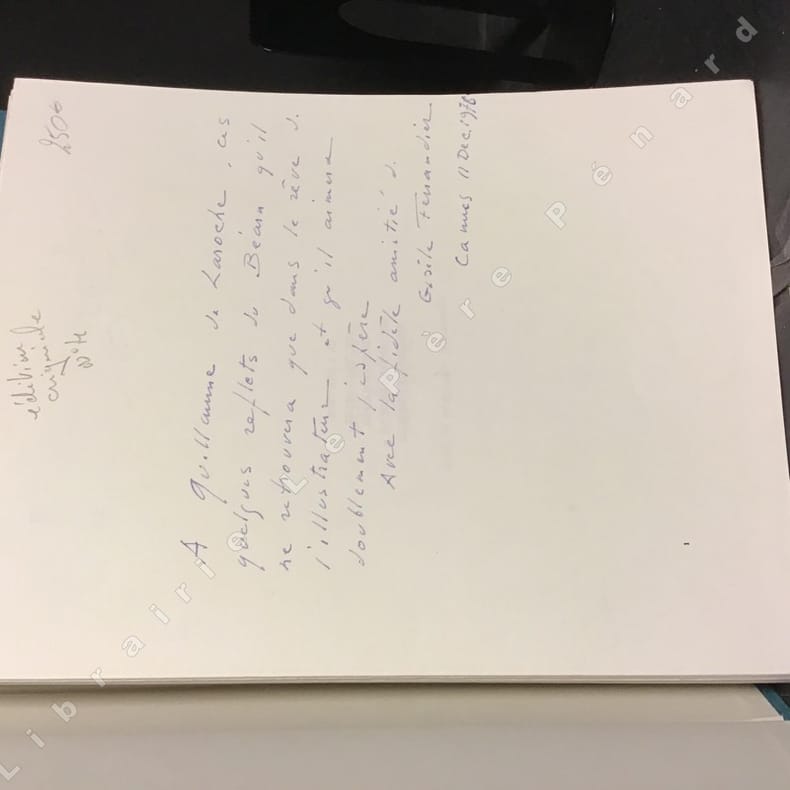 250 €
édition
originale
A Guillaume de Laroche, ces
quelques reflets du Béarn qu'il
ne retrouvera que dans le rêve de
l'illustrateur et qu'il aimera
doublement j'espère
Avec la fidèle amitié de
Gisèle Ferrandier
Cannes 11 Dec. 1978
1
Librairie Le Père Pénard